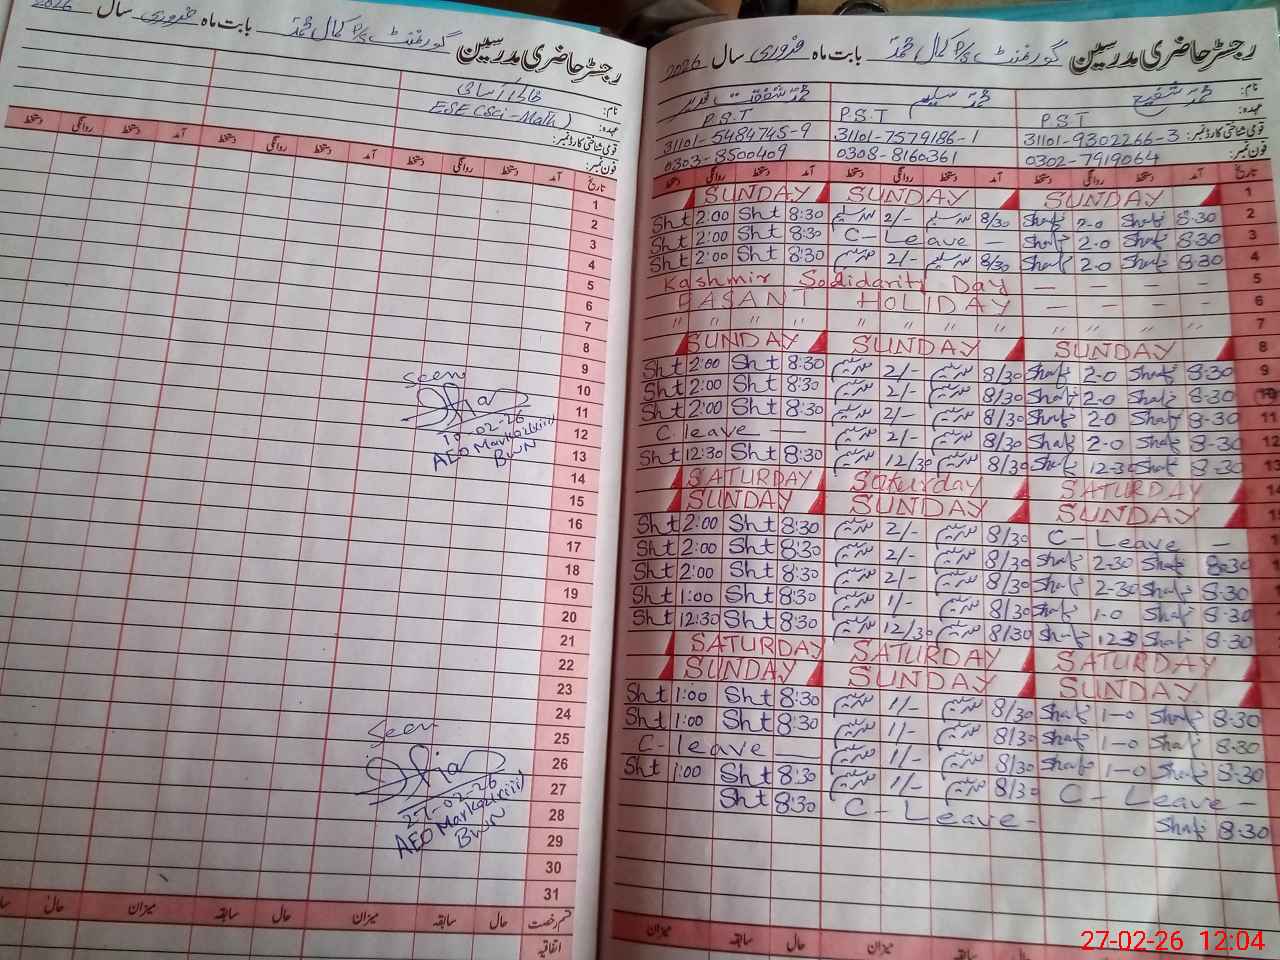 رجسٹر حاضری مدرسین گورنمنٹ P/S کمال محمد بابت ماہ فروری سال 2026
نام:
عہدہ: ESE (Sci-Math)
قومی شناختی کارڈ نمبر:
فون نمبر:
تاریخ آمد دستخط روانگی دستخط آمد دستخط روانگی دستخط آمد دستخط روانگی دستخط
1
2
3
4
5
6
7
8
9
10
11
12
13
14
15
16
17
18
19
20
21
22
23
24
25
26
27
28
29
30
31
Seen
10-02-26
AEO Markaz
BWN
Seen
27-02-26
AEO Markaz
BWN
قسم رخصت حال سابقہ میزان حال سابقہ میزان حال
اتفاقیہ
رجسٹر حاضری مدرسین گورنمنٹ P/S کمال محمد بابت ماہ فروری سال 2026
نام: محمد شفیع محمد سلیم محمد شفقت قدیر
عہدہ: P.S.T P.S.T P.S.T
قومی شناختی کارڈ نمبر: 31101-9302266-3 31101-7579186-1 31101-5484745-9
فون نمبر: 0302-7919064 0308-8160361 0303-8500409
تاریخ آمد دستخط روانگی دستخط آمد دستخط روانگی دستخط آمد دستخط روانگی دستخط
SUNDAY SUNDAY SUNDAY 1
Sht 2:00 Sht 8:30 محمد سلیم 2/- محمد سلیم 8/30 Shaf 2-0 Shaf 8-30 2
Sht 2:00 Sht 8:30 C-Leave — Shaf 2-0 Shaf 8-30 3
Sht 2:00 Sht 8:30 محمد سلیم 2/- محمد سلیم 8/30 Shaf 2-0 Shaf 8-30 4
Kashmir Solidarity Day — — — — 5
BASANT HOLIDAY — — — — 6
〃 〃 〃 〃 〃 〃 〃 〃 〃 〃 〃 〃 7
SUNDAY SUNDAY SUNDAY 8
Sht 2:00 Sht 8:30 محمد سلیم 2/- محمد سلیم 8/30 Shaf 2-0 Shaf 8-30 9
Sht 2:00 Sht 8:30 محمد سلیم 2/- محمد سلیم 8/30 Shaf 2-0 Shaf 8-30 10
Sht 2:00 Sht 8:30 محمد سلیم 2/- محمد سلیم 8/30 Shaf 2-0 Shaf 8-30 11
C leave — محمد سلیم 2/- محمد سلیم 8/30 Shaf 2-0 Shaf 8-30 12
Sht 12:30 Sht 8:30 محمد سلیم 12/30 محمد سلیم 8/30 Shaf 12-30 Shaf 8-30 13
SATURDAY Saturday SATURDAY
SUNDAY SUNDAY SUNDAY
Sht 2:00 Sht 8:30 محمد سلیم 2/- محمد سلیم 8/30 C-Leave —
Sht 2:00 Sht 8:30 محمد سلیم 2/- محمد سلیم 8/30 Shaf 2-30 Shaf 8-30
Sht 2:00 Sht 8:30 محمد سلیم 2/- محمد سلیم 8/30 Shaf 2-30 Shaf 8-30
Sht 1:00 Sht 8:30 محمد سلیم 1/- محمد سلیم 8/30 Shaf 1-0 Shaf 8-30
Sht 12:30 Sht 8:30 محمد سلیم 12/30 محمد سلیم 8/30 Shaf 12-30 Shaf 8-30
SATURDAY SATURDAY SATURDAY
SUNDAY SUNDAY SUNDAY
Sht 1:00 Sht 8:30 محمد سلیم 1/- محمد سلیم 8/30 Shaf 1-0 Shaf 8-30
Sht 1:00 Sht 8:30 محمد سلیم 1/- محمد سلیم 8/30 Shaf 1-0 Shaf 8-30
C-leave — محمد سلیم 1/- محمد سلیم 8/30 Shaf 1-0 Shaf 8-30
Sht 1:00 Sht 8:30 محمد سلیم 1/- محمد سلیم 8/30 C-Leave -
Sht 8:30 C-Leave- Shaf 8-30
میزان سابقہ حال میزان سابقہ حال
27-02-26 12:04